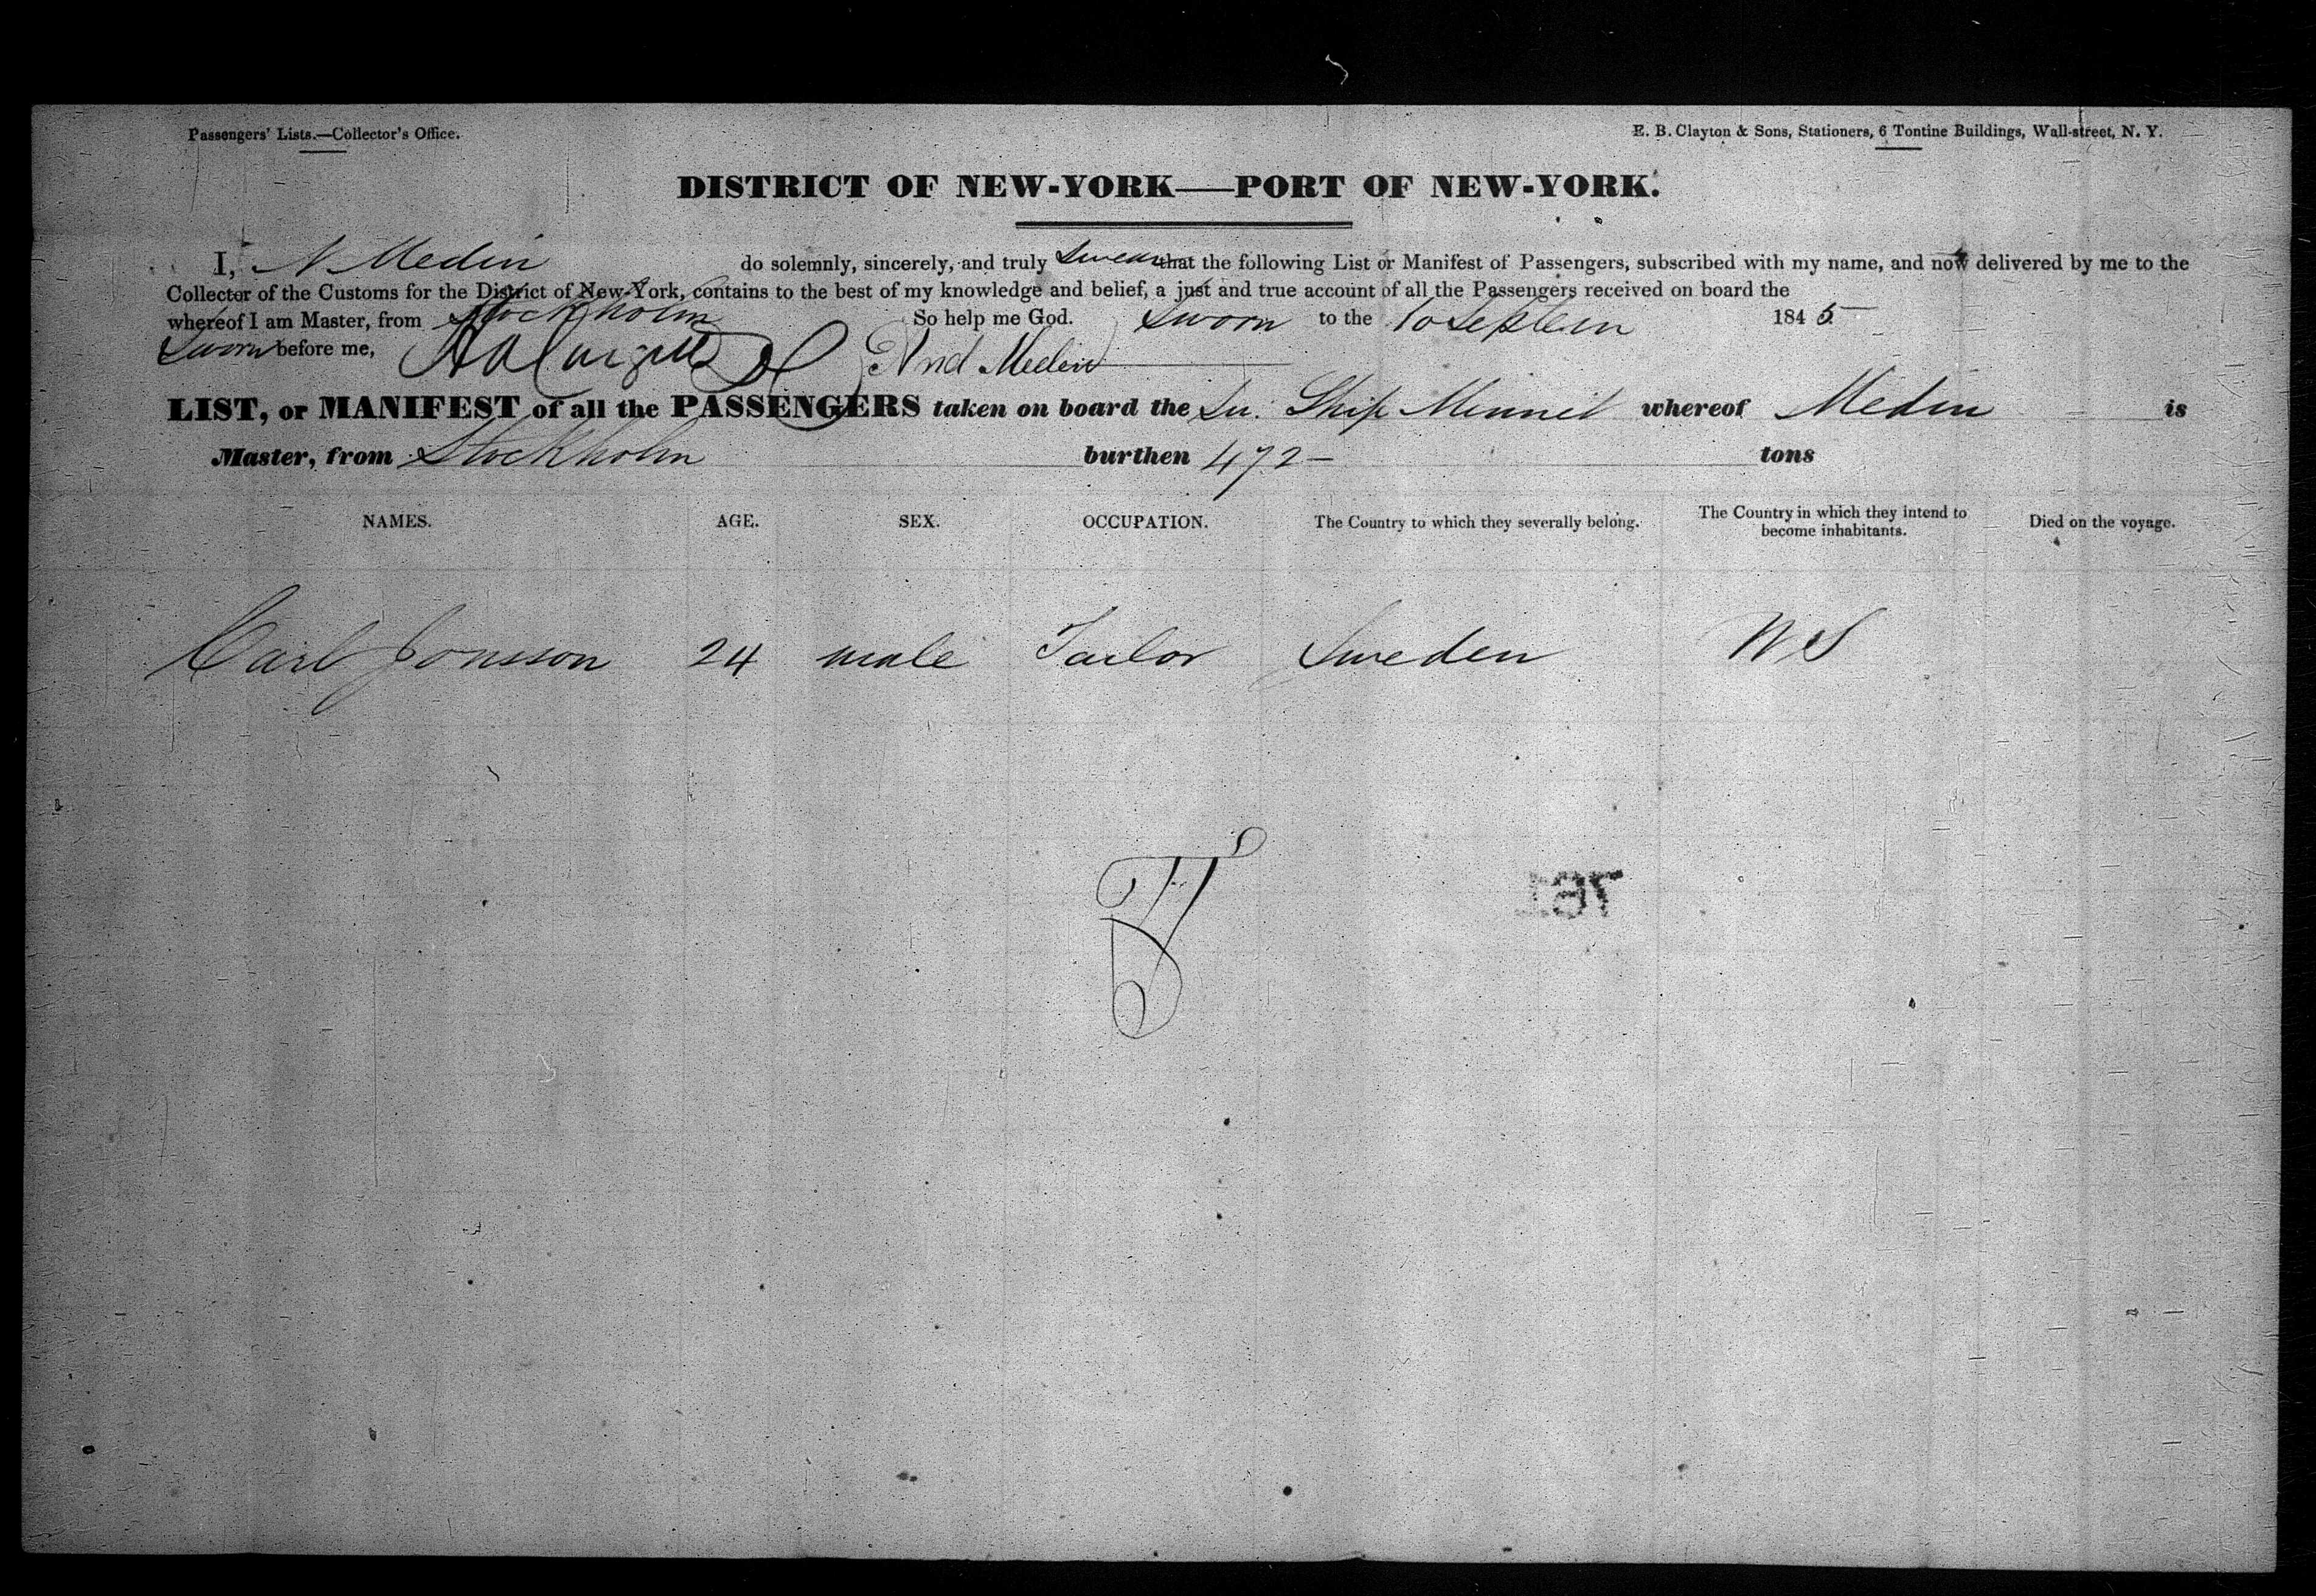 Passengers' Lists.—Collector's Office.
E. B. Clayton & Sons, Stationers, 6 Tontine Buildings, Wall-street, N. Y.
DISTRICT OF NEW-YORK—PORT OF NEW-YORK.
I, N Medin do solemnly, sincerely, and truly swear that the following List or Manifest of Passengers, subscribed with my name, and now delivered by me to the
Collector of the Customs for the District of New-York, contains to the best of my knowledge and belief, a just and true account of all the Passengers received on board the
whereof I am Master, from Stockholm So help me God. Sworn to the 10 1845
Sworn before me, Medin
LIST, or MANIFEST of all the PASSENGERS taken on board the Sw. Ship whereof Medin is
Master, from Stockholm burthen 472 — tons
NAMES. AGE. SEX. OCCUPATION. The Country to which they severally belong. The Country in which they intend to become inhabitants. Died on the voyage.
Carl Jonsson 24 male Tailor Sweden US